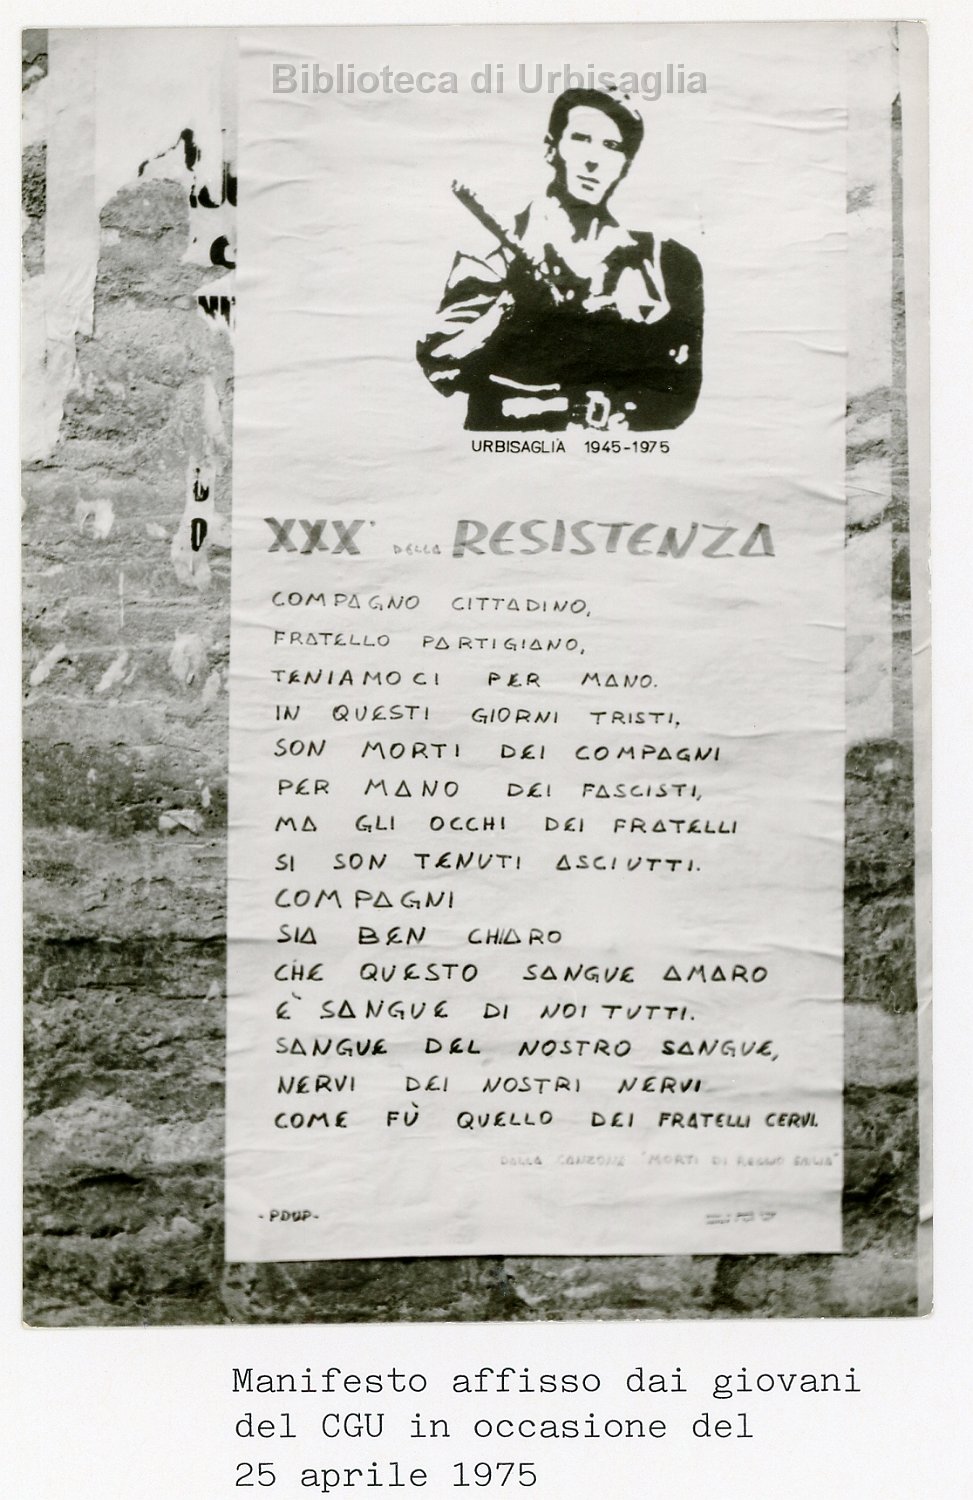 Biblioteca di Urbisaglia
URBISAGLIA 1945-1975
XXX° DELLA RESISTENZA
COMPAGNO CITTADINO,
FRATELLO PARTIGIANO,
TENIAMOCI PER MANO.
IN QUESTI GIORNI TRISTI,
SON MORTI DEI COMPAGNI
PER MANO DEI FASCISTI,
MA GLI OCCHI DEI FRATELLI
SI SON TENUTI ASCIUTTI.
COMPAGNI
SIA BEN CHIARO
CHE QUESTO SANGUE AMARO
E' SANGUE DI NOI TUTTI.
SANGUE DEL NOSTRO SANGUE,
NERVI DEI NOSTRI NERVI
COME FÙ QUELLO DEI FRATELLI CERVI.
DALLA CANZONE "MORTI DI REGGIO EMILIA"
-PDUP-
Manifesto affisso dai giovani
del CGU in occasione del
25 aprile 1975